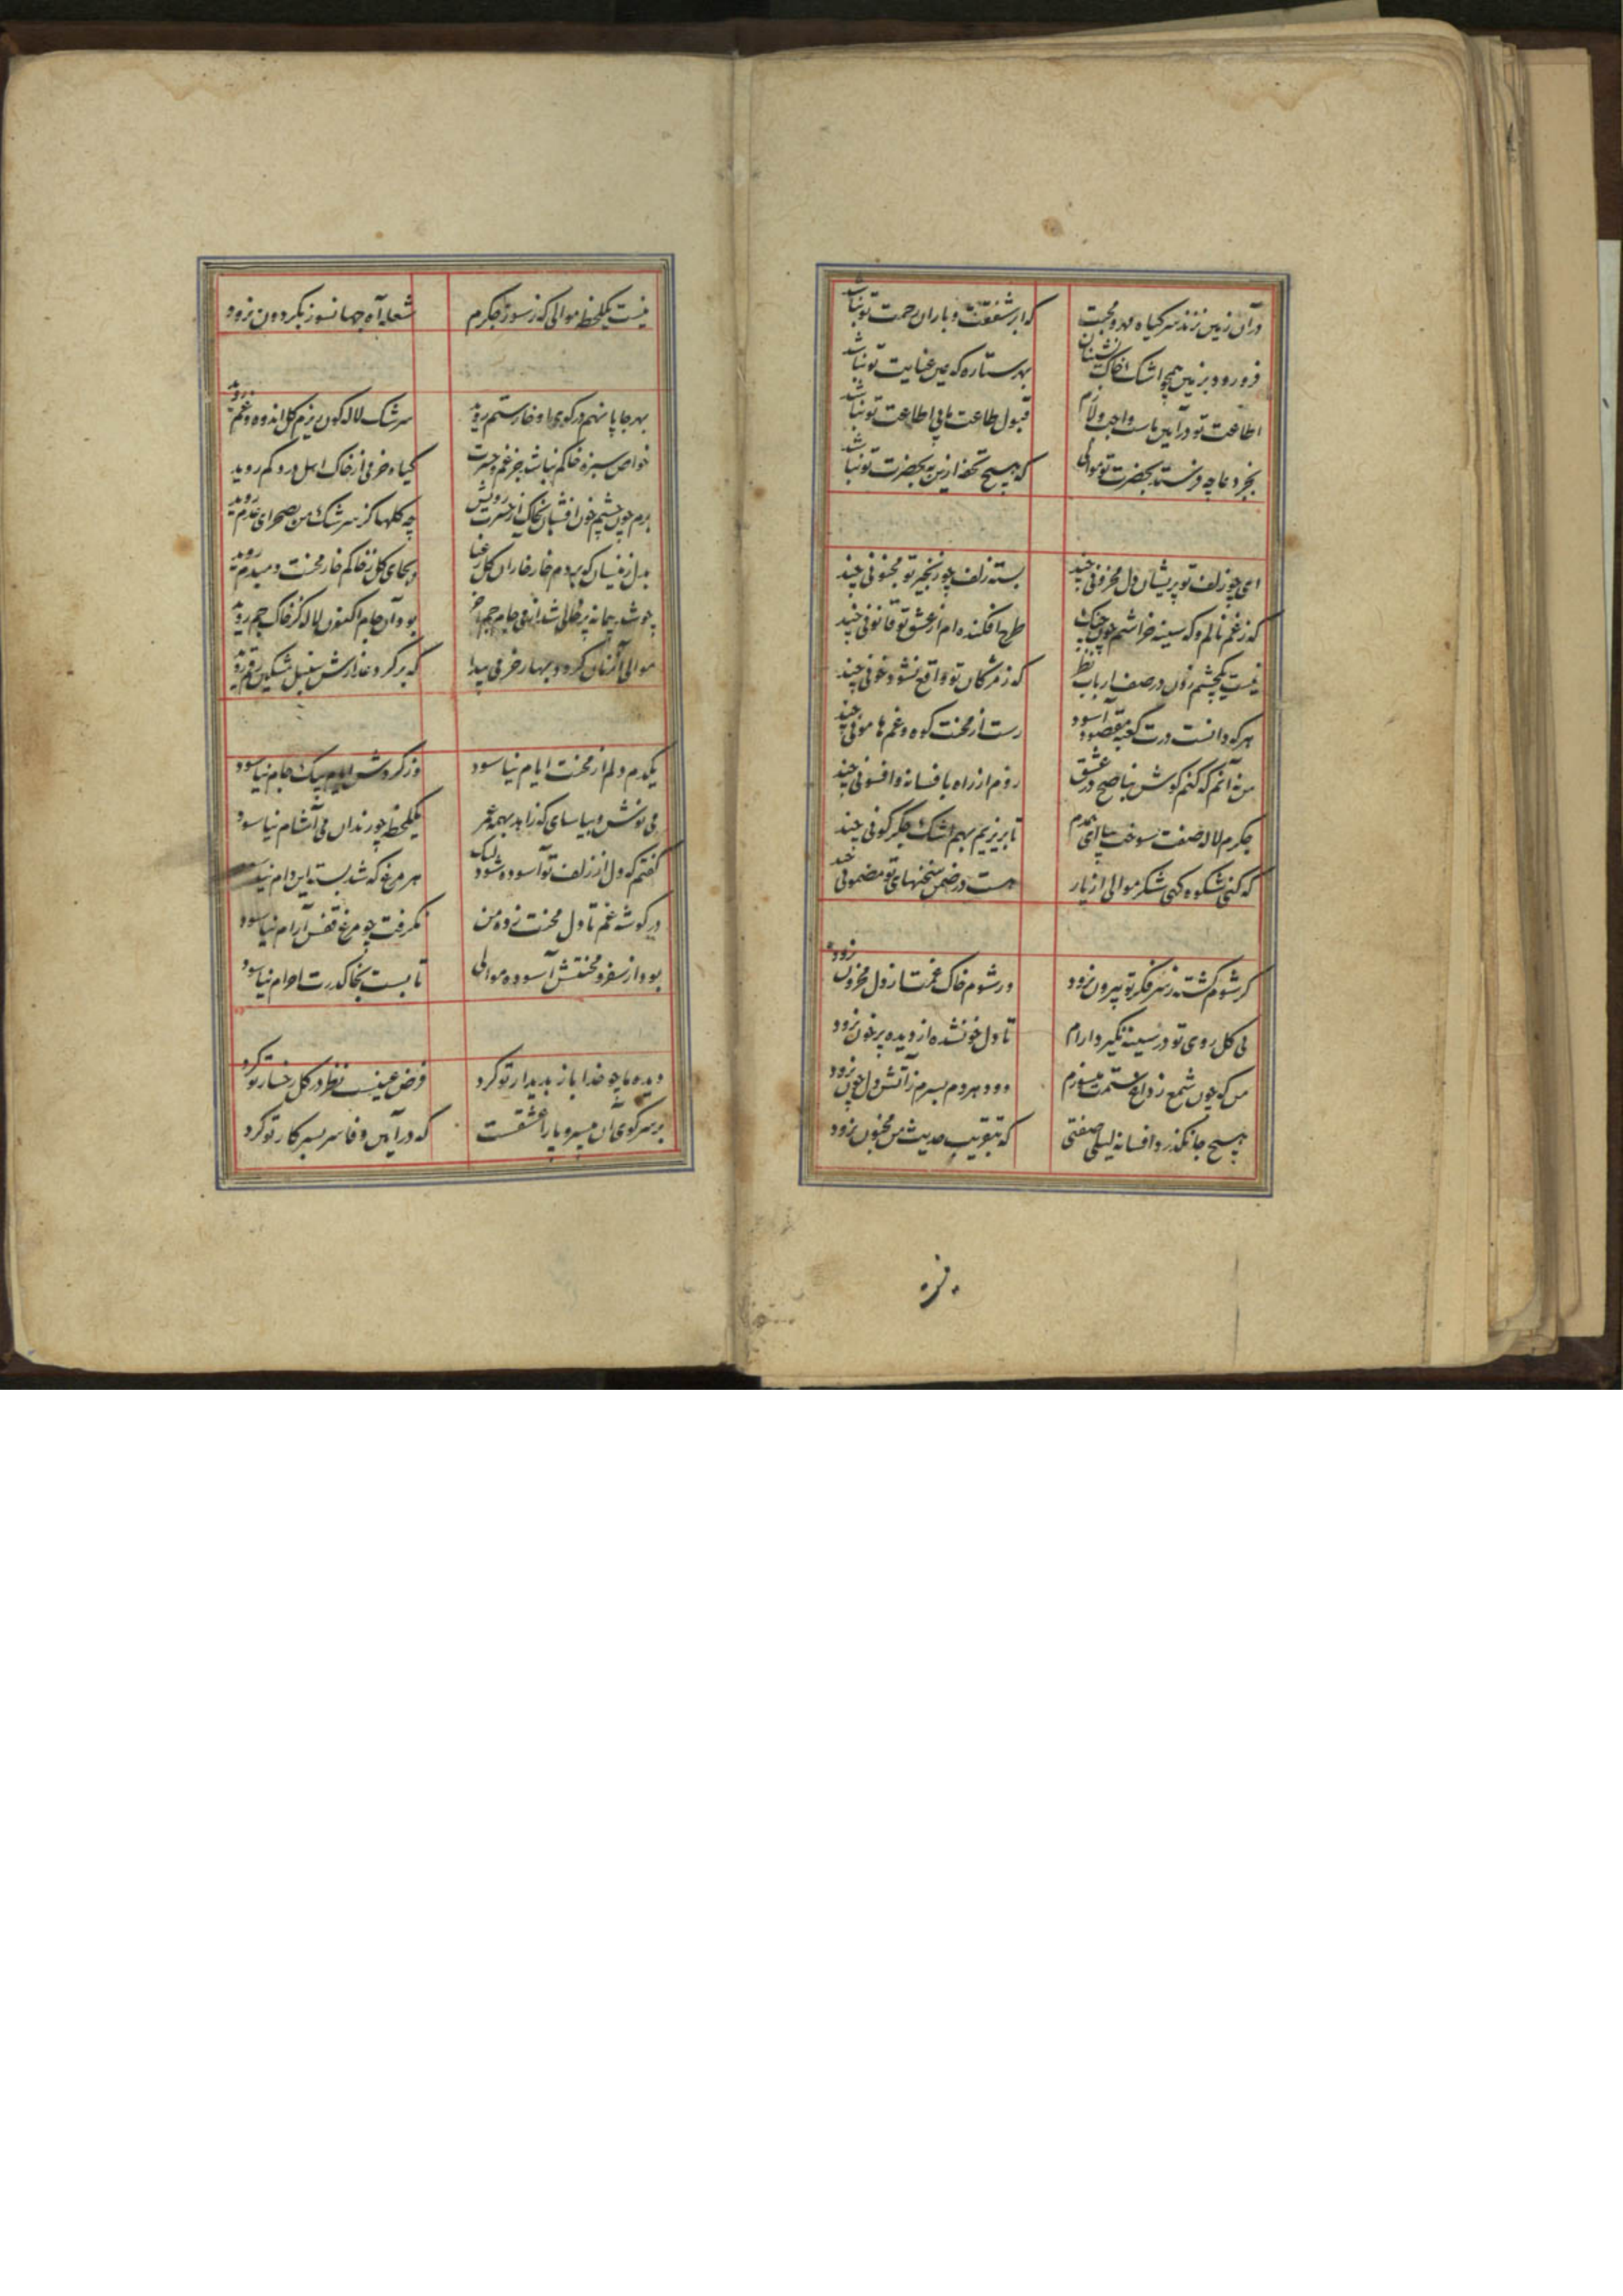 در آن زمین نزند سر گیاه مهر و محبت که ابر شفقت و باران رحمت تو نباشد
فرو رود بزمین همچو اشک خاک نشینان بهر ستاره که عین عنایت تو نباشد
اطاعت تو در آیین ماست واجب و لازم قبول طاعت ما بی اطاعت تو نباشد
بجز دعا چه فرستد بحضرت تو موالی که هیچ تحفه ازین به بحضرت تو نباشد
ای چو زلف تو پریشان دل محزونی چند بسته زلف چو زنجیر تو مجنونی چند
که ز غم نالم و که سینه خراشم چون چنگ طرح افکنده ام از عشق تو قانونی چند
نیست یکچشم زدن در صف ارباب نظر که ز مژکان تو واقع نشود خونی چند
هر که دانست درت کعبه مقصود آسود رست از محنت کوه و غم هامونی چند
من نه آنم که کنم کوش بناصح در عشق روم از راه بافسانه و افسونی چند
جکرم لاله صفت سوخت بیا ای همدم تا بریزیم بهم اشک جکرکونی چند
که کنی شکوه کهی شکر موالی از یار هست در ضمن سخنهای تو مضمونی چند
کر شوم کشته ز سر فکر تو بیرون نرود ور شوم خاک غمت از دل محزون نرود
بی کل روی تو در سینه نکیرد آرام تا دل خونشده از دیده پر خون نرود
من که چون شمع ز داغ ستمت میسوزم دود هر دم بسرم ز آتش دل چون نرود
هیچ جا نکذرد افسانه لیلی صفتی که بتقریب حدیث من مجنون نرود
نیست یکلحظه موالی که ز سوز جکرم شعله آه جهانسوز بکردون نرود
بهر جا پا نهم در کوی او خار ستم روید سرشک لاله کون ریزم کل اندوه و غم روید
خواص سبزه خاکم نباشد جز غم و حسرت کیاه خرمی از خاک اهل درد کم روید
برم چون چشم خون افشان بخاک از حسرت رویش چه کلها کز سرشک من بصحرای عدم روید
بدل زینسان که بردم خار خار آن کل رعنا بجای کل ز خاکم خار محنت دمبدم روید
چو شد پیمانه پر خالی شد از می جام جم آخر بود آن جام اکنون لاله کز خاک جم روید
موالی آنزمان کردد بهار خرمی پیدا که بر کرد عذارش سنبل مشکین رقم روید
یکدم دلم از محنت ایام نیاسود وز کردش ایام بیک جام نیاسود
می نوش و بیاسای که زاهد بهمه عمر یکلحظه چو رندان می آشام نیاسود
کفتم که دل از زلف تو آسوده شود لیک هر مرغ که شد بسته این دام نیاسود
در کوشه غم تا دل محنت زده من نکرفت چو مرغ قفس آرام نیاسود
بود از سفر و محنتش آسوده موالی تا بست بخاک درت احرام نیاسود
دیده ما چو خدا باز بدیدار تو کرد فرض عین نظر در کل رخسار تو کرد
بر سر کوی آن میسر و پا را عشقست که در آیین وفا سر بسر کار تو کرد